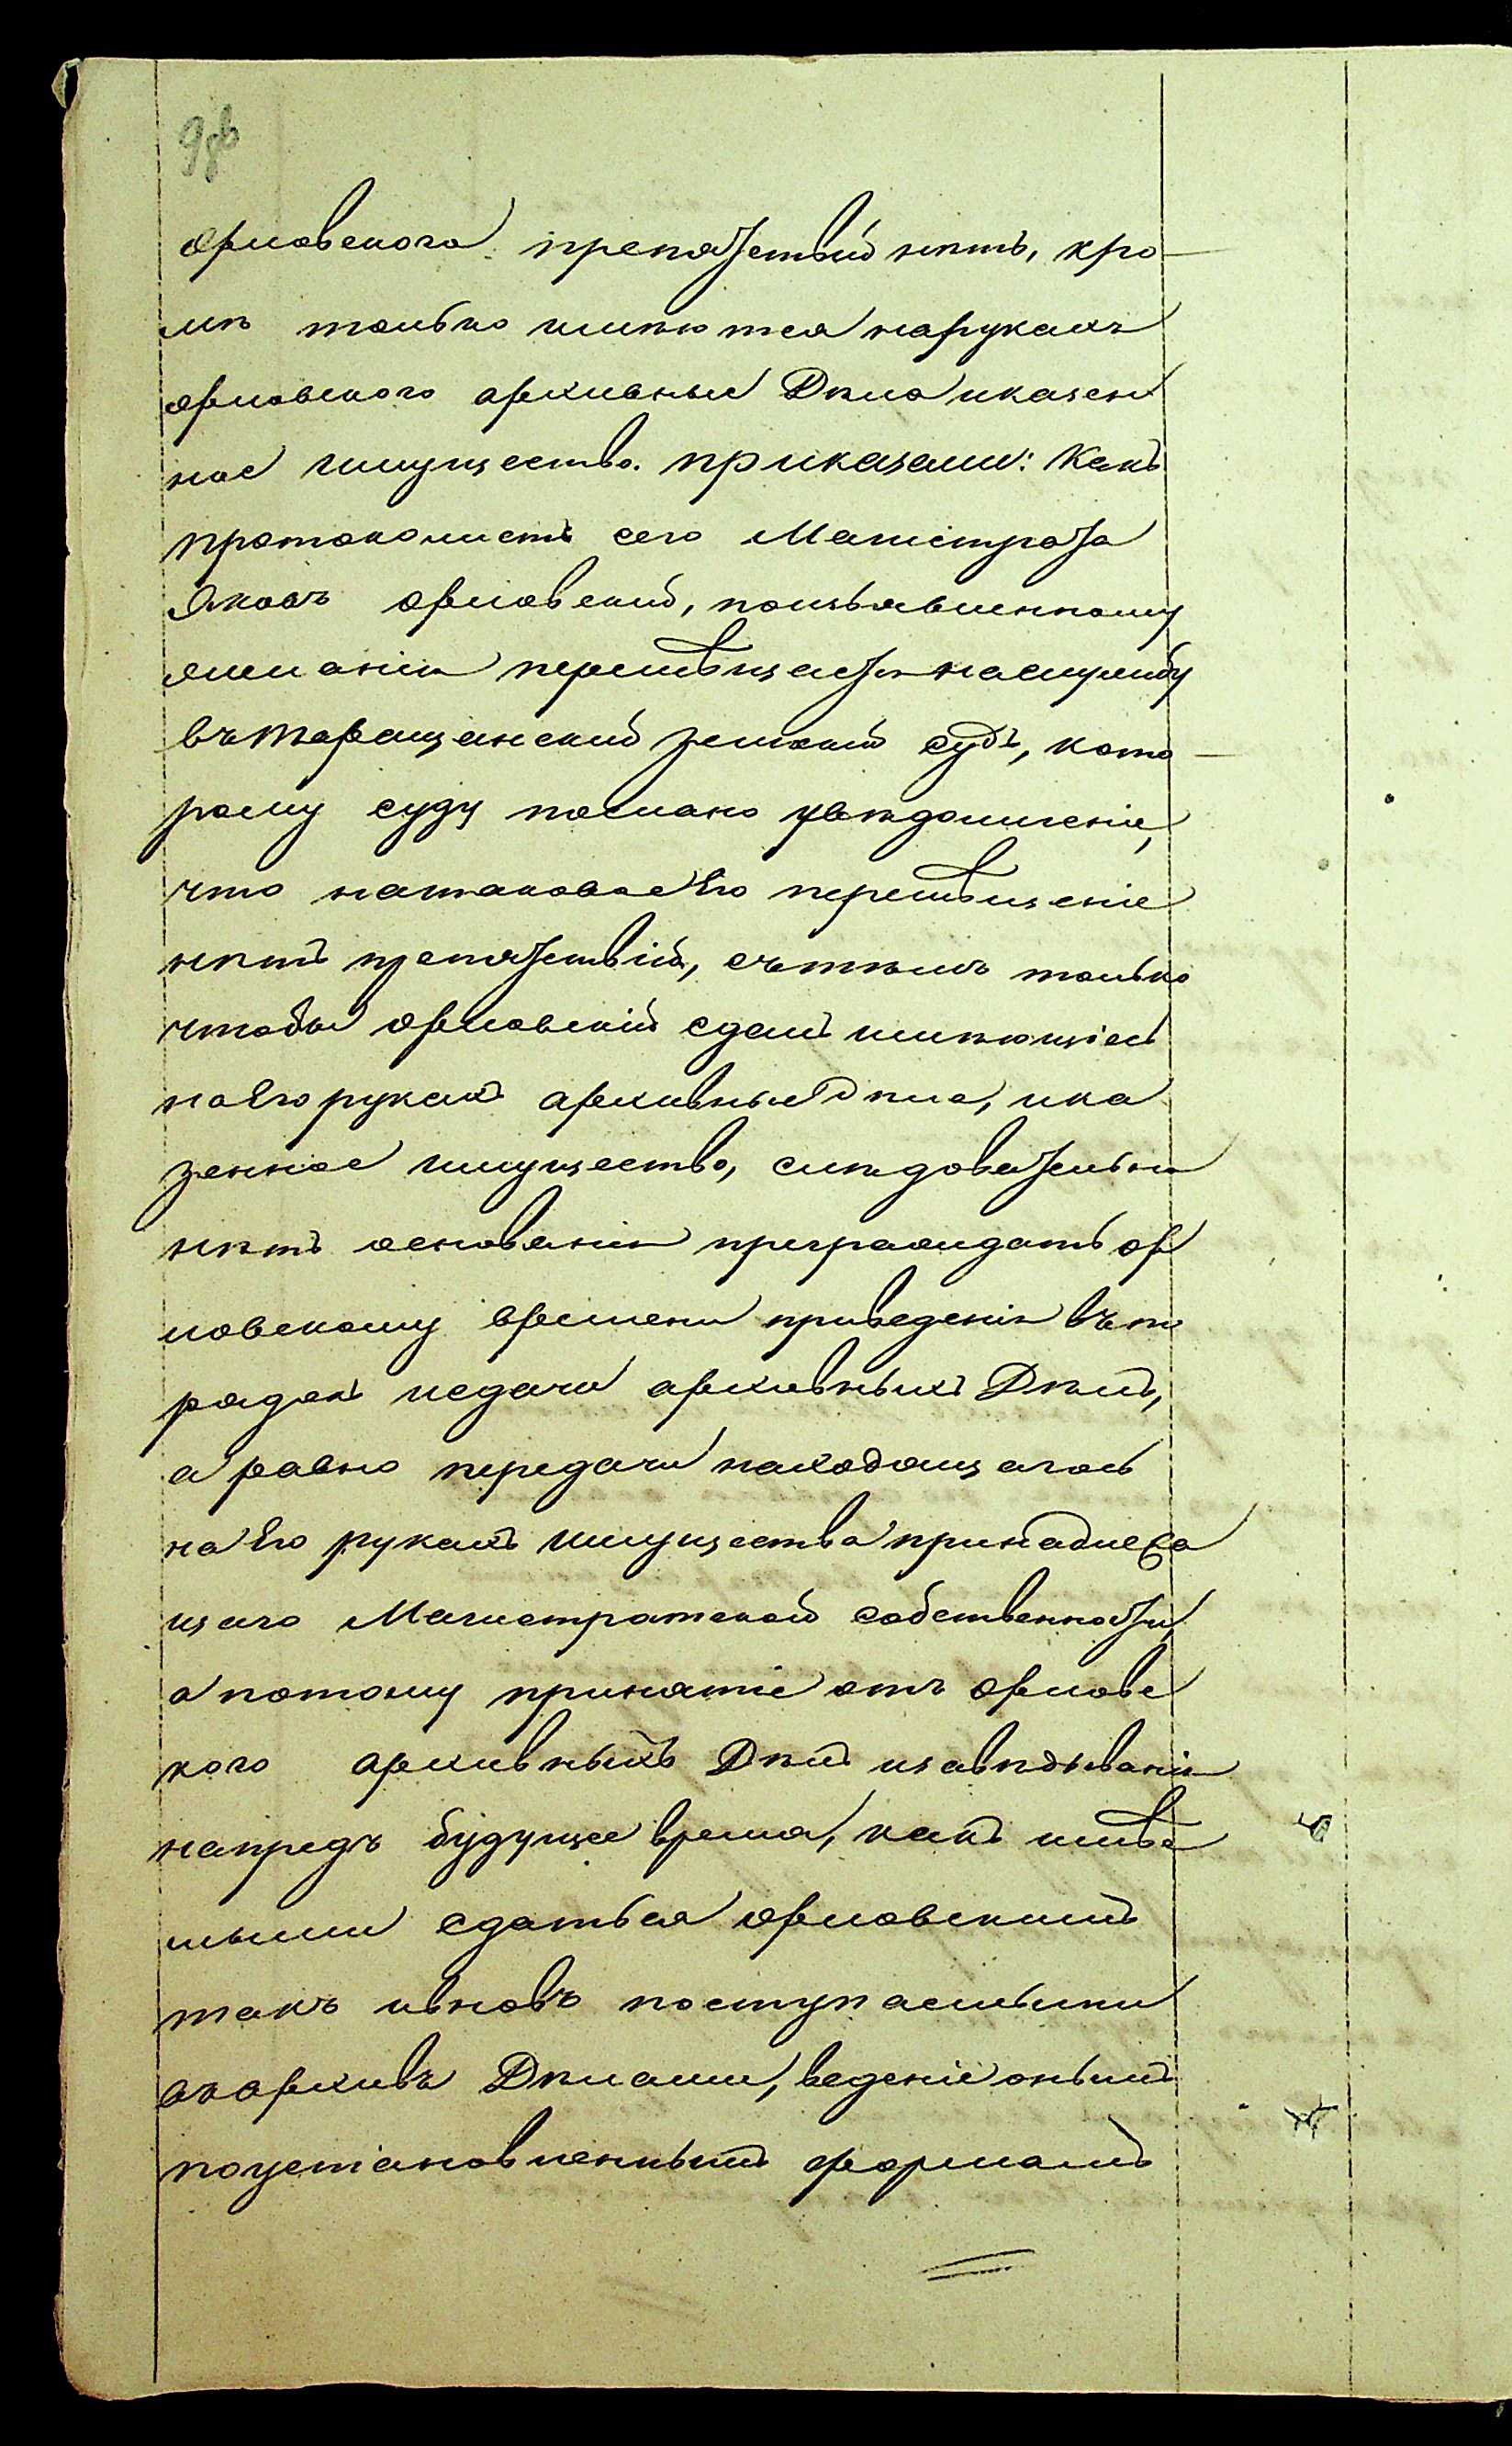 98б
орловскога препятствий нѣтъ, кро-
мѣ только имѣются нарукахъ
орловского архивные Дѣла иказен
ное имущество. приказали: Какъ
протоколистъ сего Магистрата
Яковъ орловский, поизъявленному
желанію перемѣщается наслужбу
въ таращанский земский судъ, кото-
рому суду послано увѣдомленіе,
что натаковое Его перемѣщеніе
нѣтъ препятствій, съ тѣмъ только
чтобы орловскій сдалъ имѣющіесь
на Его рукахъ архивные Дѣла, ика
зенное имущество, слѣдовательно
нѣтъ основанія преграждать ор
ловскому времени приведенія въ по
рядокъ исдачи архивныхъ Дѣлъ,
а равно передачи находящагось
на Его рукахъ имущества принадлежа
щаго Магистратской собственности,
а потому принятіе отъ орловс
кого архивныхъ Дѣлъ изавѣдываніе
напредъ будущее время, какъ имѣе
мыми сдаться орловскимъ
такъ ивновь поступаемыми
въ архивъ Дѣлами, веденіе онымъ
поустановленнымъ формамъ